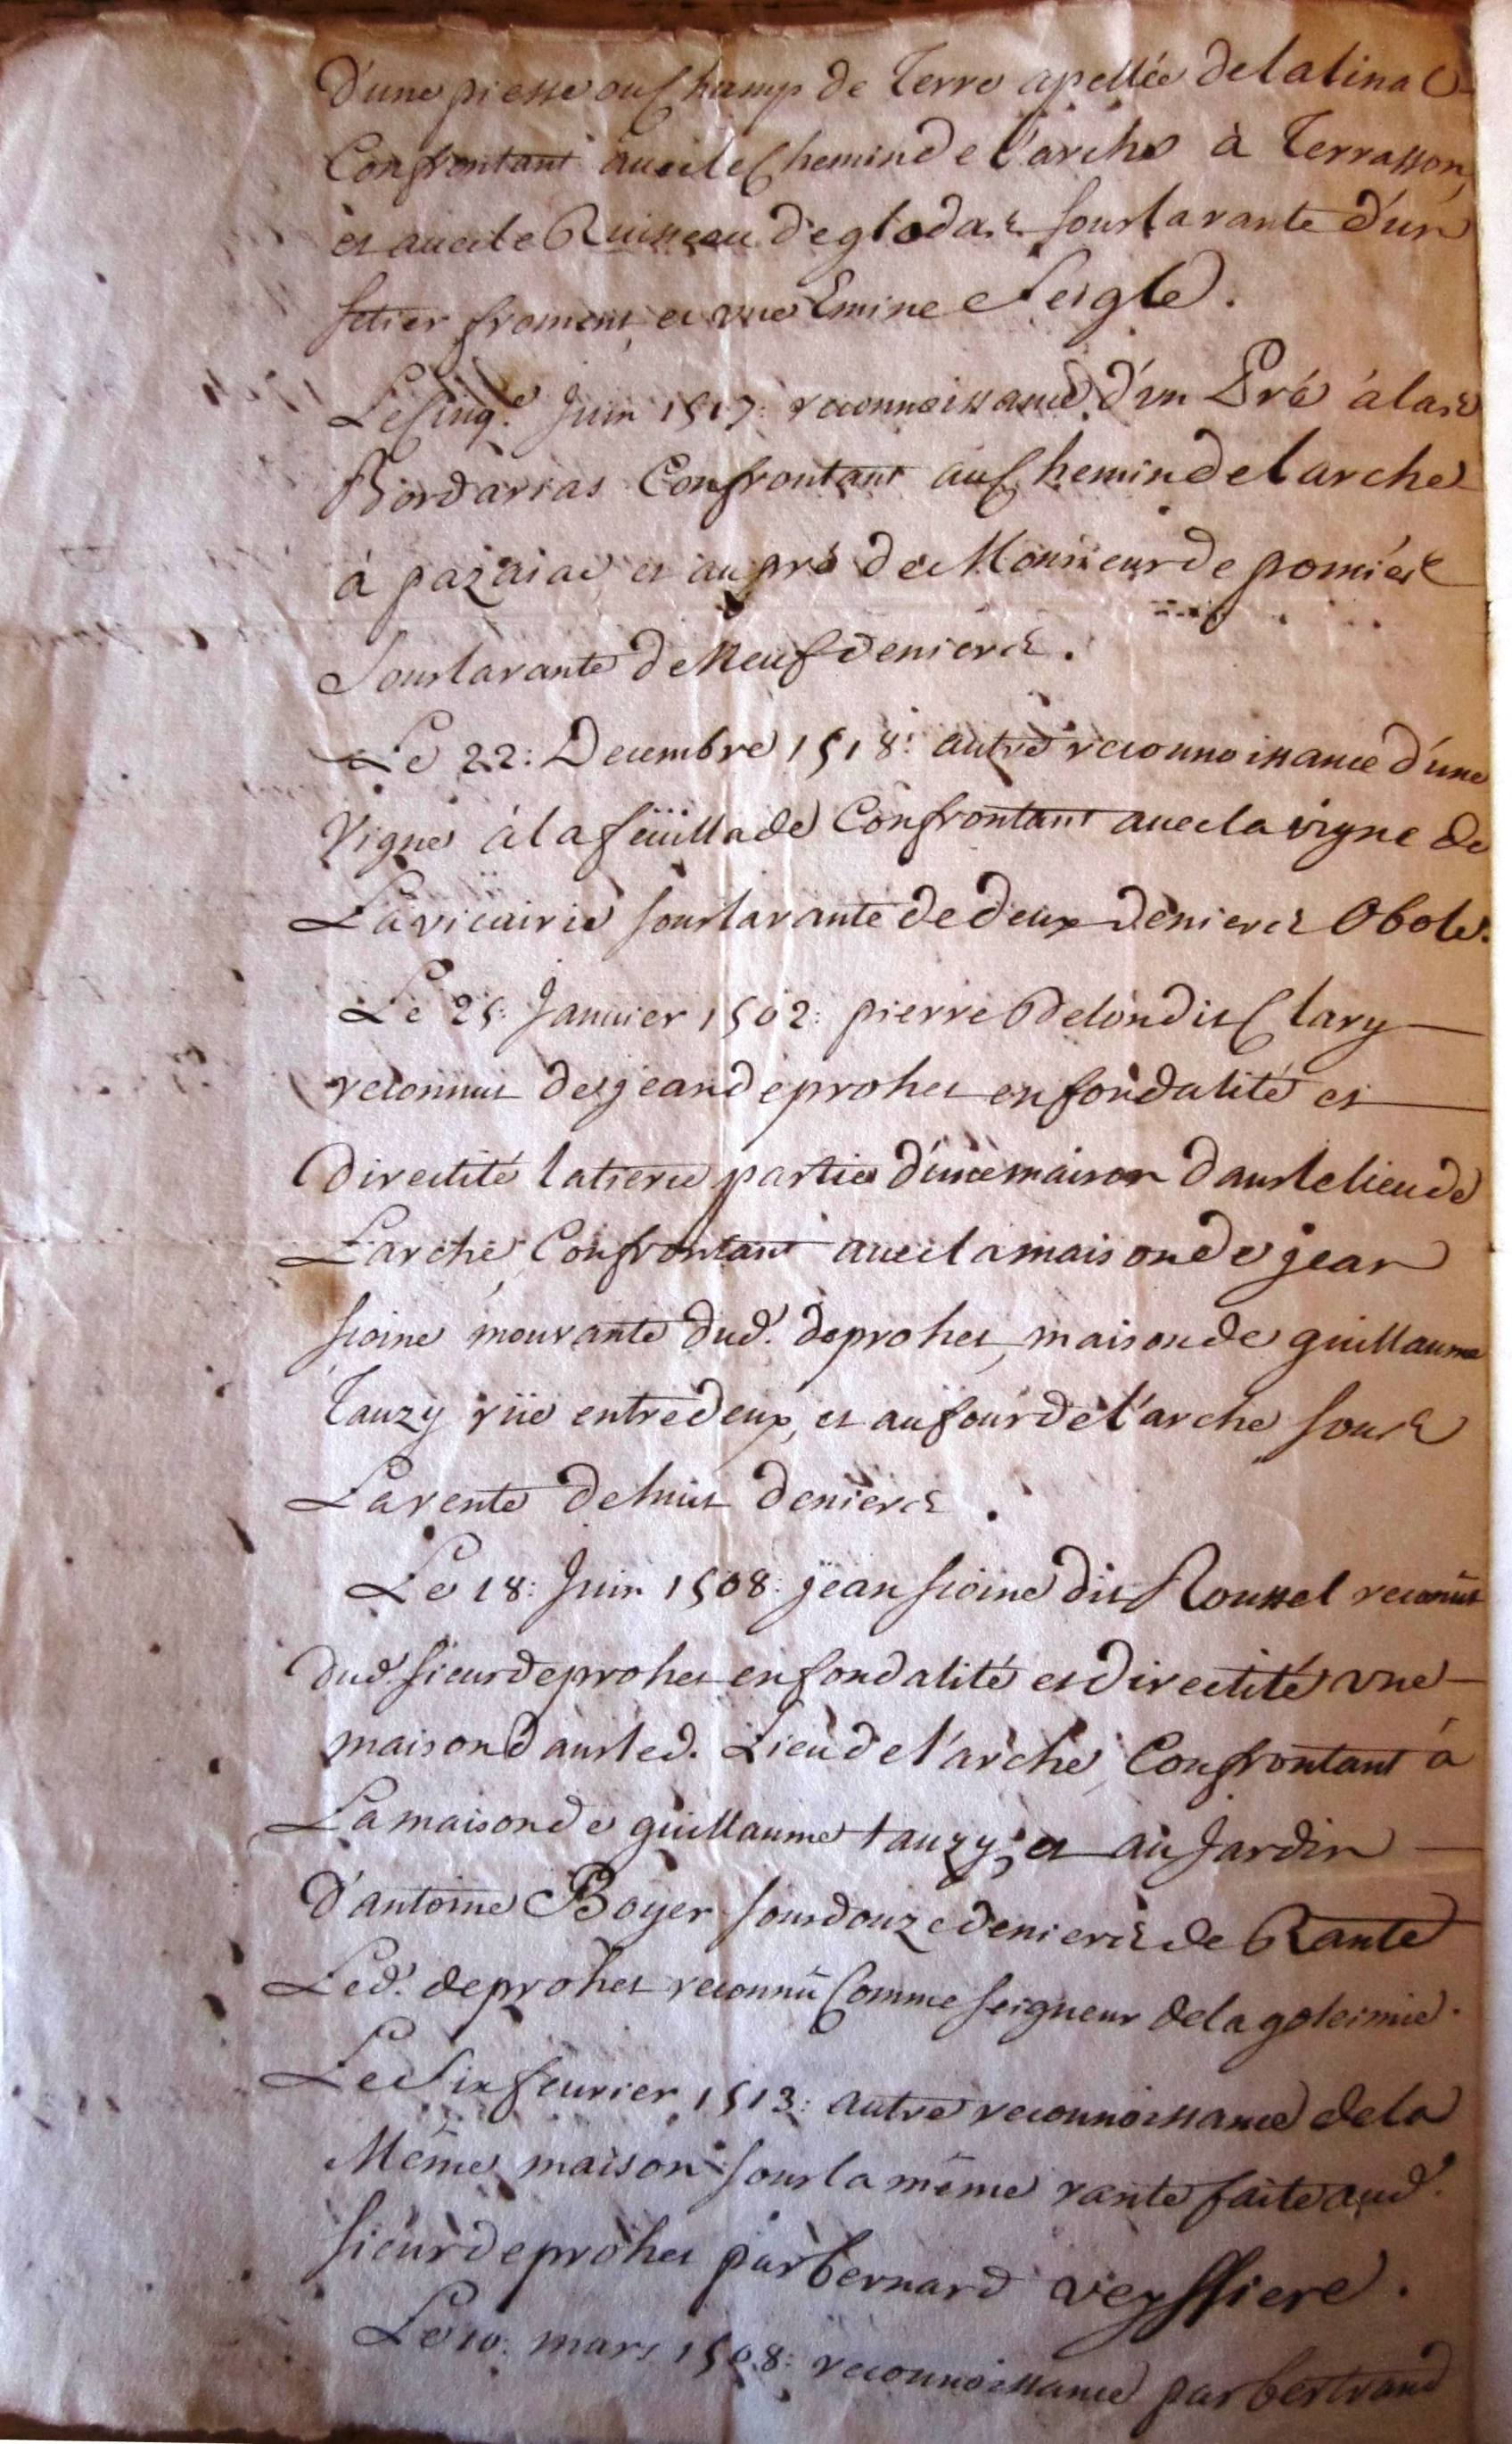 D'une piesse ou Champ de Terre apellée de la lina
Confrontant avec le Chemin de l'arche à Terrasson,
et avec le Ruisseau d'eglodas sous la rante d'un
setier froment et une Emine Seigle.
Le Cinq.e Juin 1517: reconnoissance d'un Pré à las
Bordarias Confrontant au Chemin de larche
à pazaiac et au pré de Monsieur de pomiés
sous la rante de Neuf deniers.
Le 22: Decembre 1518: autre reconnoissance d'une
Vigne à la feüillade Confrontant avec la vigne de
La vicairie sous la rante de deux deniers Obole.
Le 25: Janvier 1502: pierre Delon dit Clary
reconnut de jean de prohet en fondalité et
Directité la tierce partie d'une maison dans le lieu de
Larche, Confrontant avec la maison de jean
sioine mouvante dud. de prohet, maison de guillaume
Tauzy rüe entre deux, et au four de l'arche sous
La rente de huit deniers.
Le 18: Juin 1508: jean sioine dit Roussel reconnut
dud. sieur de prohet en fondalité et directité une
maison dans led. Lieu de l'arche, Confrontant à
La maison de guillaume tauzy, et au Jardin
D'antoine Boyer sous douze deniers de Rante
Led. de prohet reconnû Comme seigneur de la goleimie.
Le Six fevrier 1513: autre reconnoissance de la
Même maison sous la même rante faite aud.
sieur de prohet par bernard veyssiere.
Le 10: mars 1508: reconnoissance par bertrand